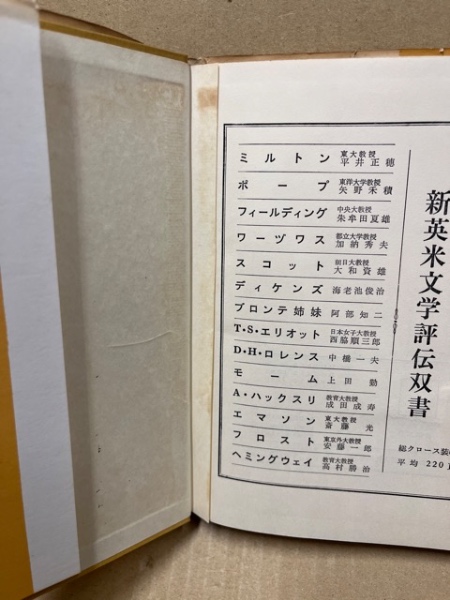 新英米文学評伝双書
ミルトン 東大教授 平井正穂
ポープ 東洋大学教授 矢野禾積
フィールディング 中央大教授 朱牟田夏雄
ワーヅワス 都立大学教授 加納秀夫
スコット 朝日大教授 大和資雄
ディケンズ 海老池俊治
ブロンテ姉妹 阿部知二
T・S・エリオット 日本女子大教授 西脇順三郎
D・H・ロレンス 中橋一夫
モーム 上田勤
A・ハックスリ 教育大教授 成田成寿
エマソン 東大教授 斎藤光
フロスト 東京外大教授 安藤一郎
ヘミングウェイ 教育大教授 高村勝治
総クロース装
平均220